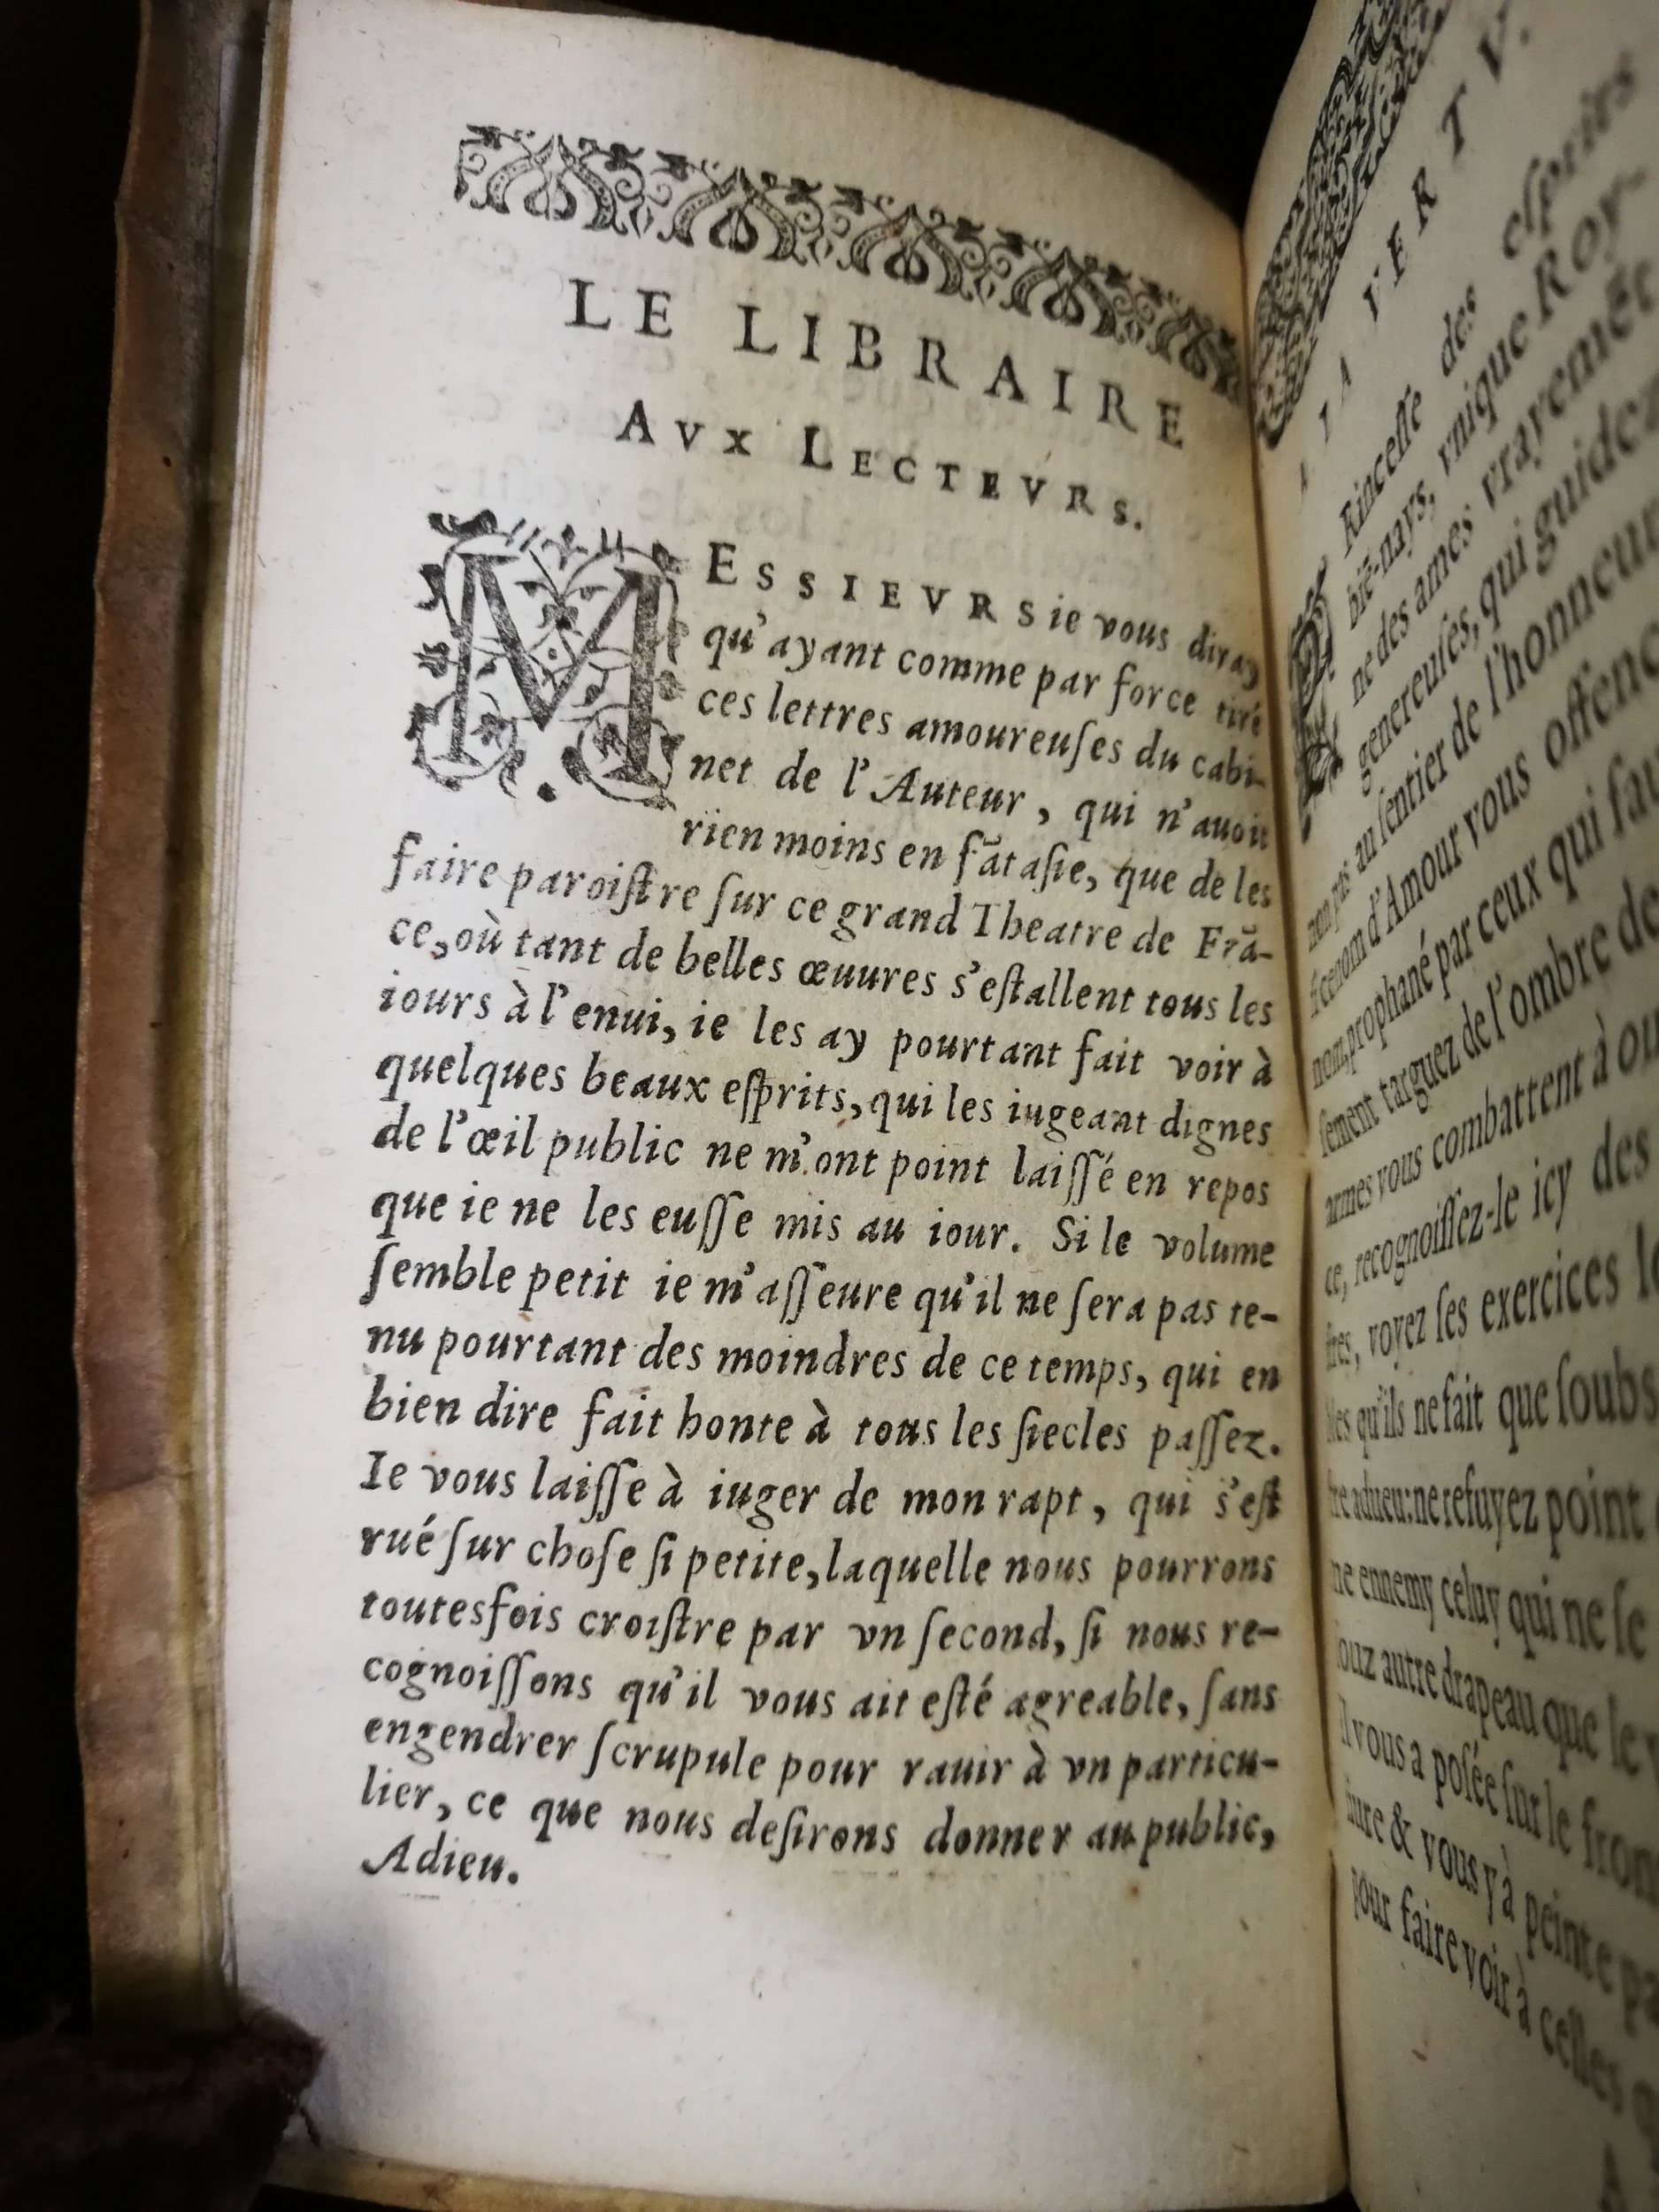 LE LIBRAIRE
AVX LECTEVRS.
MESSIEVRS ie vous diray
qu'ayant comme par force tiré
ces lettres amoureuſes du cabi-
net de l'Auteur, qui n'auoit
rien moins en fãtaſie, que de les
faire paroiſtre ſur ce grand Theatre de Frã-
ce, où tant de belles œuures s'eſtallent tous les
iours à l'enui, ie les ay pourtant fait voir à
quelques beaux eſprits, qui les iugeant dignes
de l'œil public ne m'ont point laiſſé en repos
que ie ne les euſſe mis au iour. Si le volume
ſemble petit ie m'aſſeure qu'il ne ſera pas te-
nu pourtant des moindres de ce temps, qui en
bien dire fait honte à tous les ſiecles paſſez.
Ie vous laiſſe à iuger de mon rapt, qui s'eſt
rué ſur choſe ſi petite, laquelle nous pourrons
toutesfois croiſtre par vn ſecond, ſi nous re-
cognoiſſons qu'il vous ait eſté agreable, ſans
engendrer ſcrupule pour rauir à vn particu-
lier, ce que nous deſirons donner au public,
Adieu.
A LA VERTV.
Rinceſſe des eſprits
biẽ-nays, vnique Roy-
ne des ames vrayemẽt
genereuſes, qui guidez
au ſentier de l'honneur
ce nom d'Amour vous offenc
nom prophané par ceux qui ſau
ſement targuez de l'ombre de
armes vous combattent à ou
ce, recognoiſſez-le icy des
voyez ſes exercices
qu'ils ne fait que ſoubs
adieu: ne refuyez point
ne ennemy celuy qui ne ſe
autre drapeau que le
il vous a poſée ſur le fron
& vous y à peinte
pour faire voir à celles